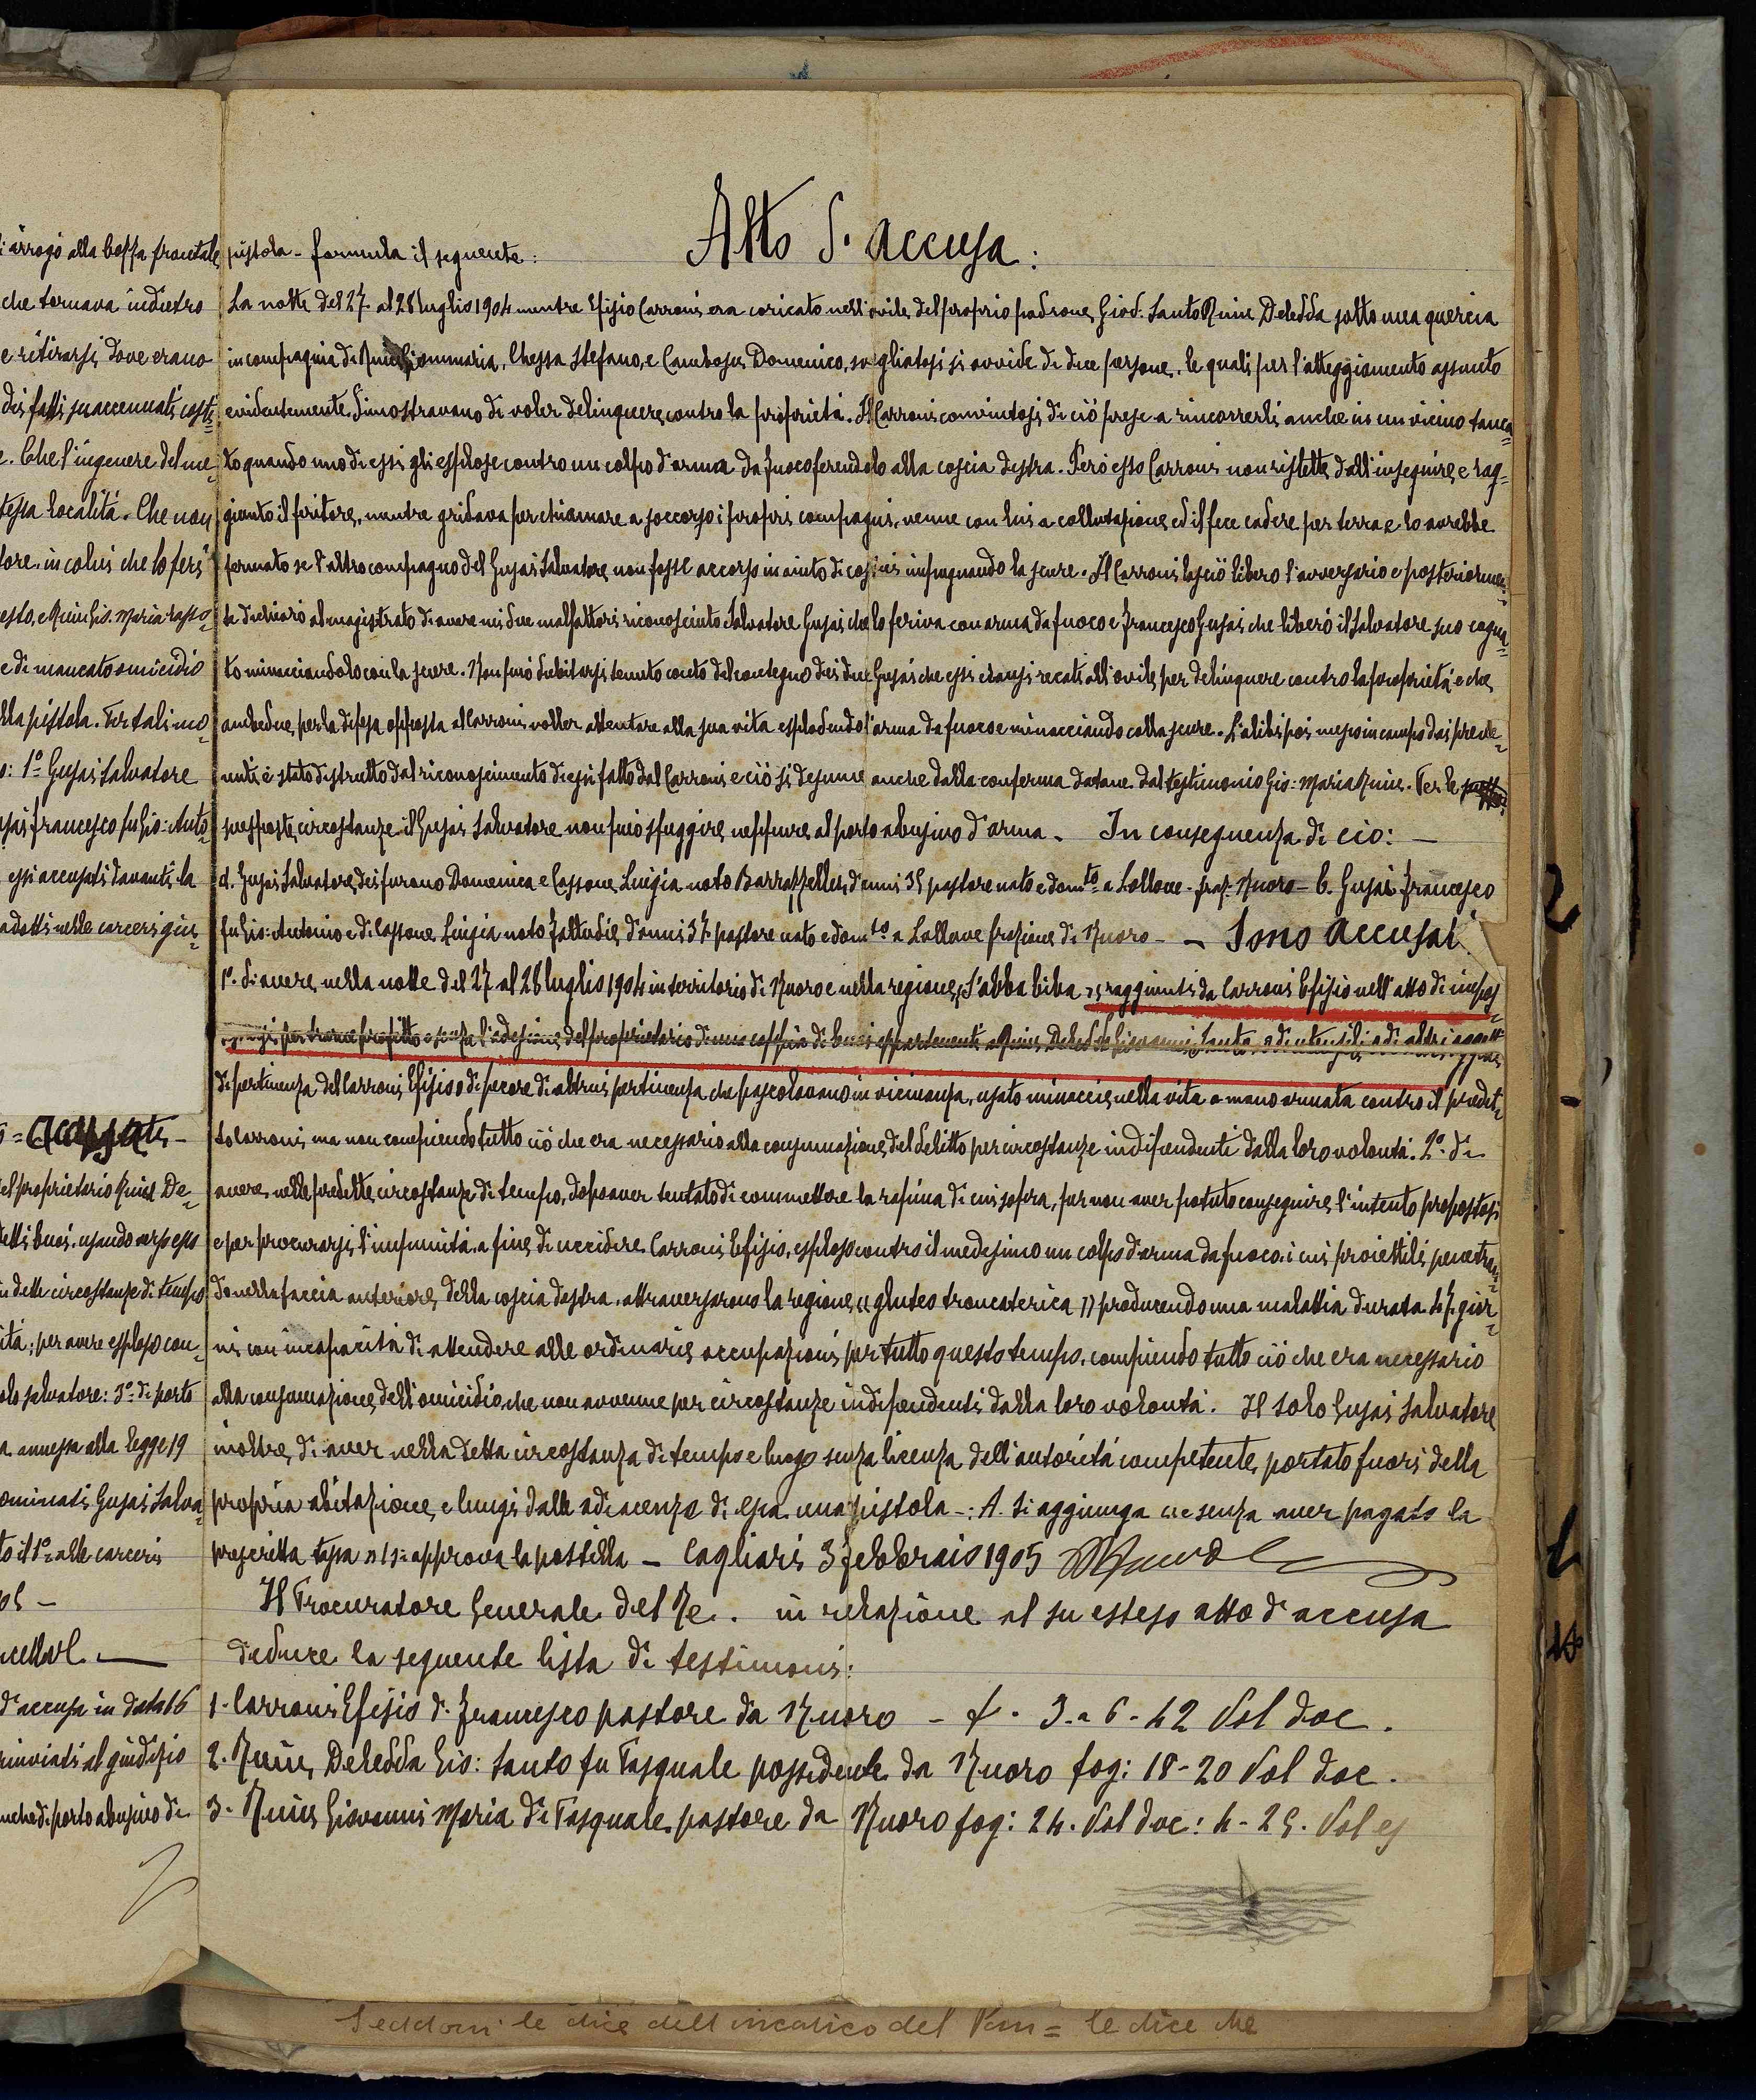 Atto d'accusa:
pistola - formula il seguente:
La notte del 27 al 28 luglio 1904 mentre Efisio Carroni era coricato nell'ovile del proprio padrone Giov. Santo Ruiu Deledda sotto una quercia
in compagnia di Ruiu Giommaria, Chessa Stefano, e Cambosu Domenico, svegliatosi si avvide di due persone, le quali per l'atteggiamento assunto
evidentemente dimostravano di voler delinquere contro la proprietà. Il Carroni convintosi di ciò prese a rincorrerli anche in un vicino tanca=
to quando uno di essi gli esplose contro un colpo d'arma da fuoco ferendolo alla coscia destra. Però esso Carroni non ristette dall'inseguire, e rag=
giunto il feritore, mentre gridava per chiamare a soccorso i propri compagni, venne con lui a colluttazione ed il fece cadere per terra e lo avrebbe
fermato se l'altro compagno del Gusai Salvatore non fosse accorso in aiuto di costui impugnando la scure. Il Carroni lasciò libero l'avversario e posteriormen=
te dichiarò al magistrato di avere nei due malfattori riconosciuto Salvatore Gusai che lo feriva con arma da fuoco e Francesco Gusai che liberò il Salvatore suo cogna=
to minacciandolo con la scure. Non può dubitarsi tenuto conto del contegno dei due Gusai che essi eransi recati all'ovile per delinquere contro la proprietà e che
ambedue, per la difesa opposta al Carroni voller attentare alla sua vita esplodendo l'arma da fuoco e minacciando colla scure. L'alibi poi messo in campo dai preve=
nuti, è stato distrutto dal riconoscimento di essi fatto dal Carroni e ciò si desume anche dalla conferma datane dal testimonio Gio: Maria Ruiu. Per le
suesposte circostanze il Gusai Salvatore non può sfuggire neppure al porto abusivo d'arma. In conseguenza di ciò: —
a. Gusai Salvatore dei furono Domenica e Cassone Luigia noto Barrazzelleu, d'anni 35 pastore nato e domto a Lollove - fraz. Nuoro - b. Gusai Francesco
fu Gio: Antonio e di Cassone Luigia noto Fattudie, d'anni 37 pastore nato e domto a Lollove frazione di Nuoro - — Sono accusati
1º. di avere, nella notte del 27 al 28 luglio 1904 in territorio di Nuoro e nella regione, S'abba biba raggiunti da Carroni Efisio nell'atto di impos=
per trarne profitto e senza l'adesione del proprietario di una coppia di buoi appartenenti a Ruiu Deledda Giovanni Santo, o di utensili o di altri oggetti
di pertinenza del Carroni Efisio o di pecore di altrui pertinenza che pascolavano in vicinanza, usato minaccie nella vita a mano armata contro il predet=
to Carroni, ma non compiendo tutto ciò che era necessario alla consumazione del delitto per circostanze indipendenti dalla loro volontà. 2º. di
avere, nelle predette circostanze di tempo, dopo aver tentato di commettere la rapina di cui sopra, per non aver potuto conseguire l'intento propostosi
e per procurarsi l'impunità, a fine di uccidere Carroni Efisio, esploso contro il medesimo un colpo d'arma da fuoco i cui proiettili, penetran=
do nella faccia anteriore, della coscia destra, attraversarono la regione "gluteo troncaterica" producendo una malattia durata 47 gior=
ni con incapacità di attendere alle ordinarie occupazioni per tutto questo tempo, compiendo tutto ciò che era necessario
alla consumazione dell'omicidio che non avvenne per circostanze indipendenti dalla loro volontà. Il solo Gusai Salvatore
inoltre, di aver nella detta circostanza di tempo e luogo senza licenza dell'autorità competente, portato fuori della
propria abitazione, e lungi dalle adiacenze di essa una pistola -: A. Si aggiunga "e senza aver pagato la
prescritta tassa" si approva la postilla — Cagliari 3 febbraio 1905
Il Procuratore Generale del Re. in relazione al su esteso atto d'accusa
deduce la seguente lista di testimoni:
1. Carroni Efisio di Francesco pastore da Nuoro - f. 3. a 6 - 42 Vol doc.
2. Ruiu, Deledda Gio: Santo fu Pasquale possidente da Nuoro fog: 18-20 Vol doc.
3. Ruiu Giovanni Maria di Pasquale, pastore da Nuoro fog: 24. Vol doc: 4-25. Vol
i arrogò alla bozza frontale
che tornava indietro
e ritirarsi, dove erano
dei fatti suaccennati costi=
e. Che l'ingenere del me=
tessa località. Che non
tore, in colui che lo ferì
esto, e Ruiu Gio. Maria
e di mancato omicidio
lla pistola. Per tali mo=
o: 1º Gusai Salvatore
usai Francesco fu Gio: Anto=
essi accusati davanti la
adotti nelle carceri giu=
= accusati -
el proprietario Ruiu De=
detti buoi, usando verso esso
in dette circostanze di tempo
ità; per avere esploso con=
olo Salvatore: 3º. di porto
a. annessa alla legge 19
ominati Gusai Salva=
to il 1º. alle carceri
d'accusa in data 16
rinviati al giudizio
anche di porto abusivo di
le dice dell'incarico del = le dice che